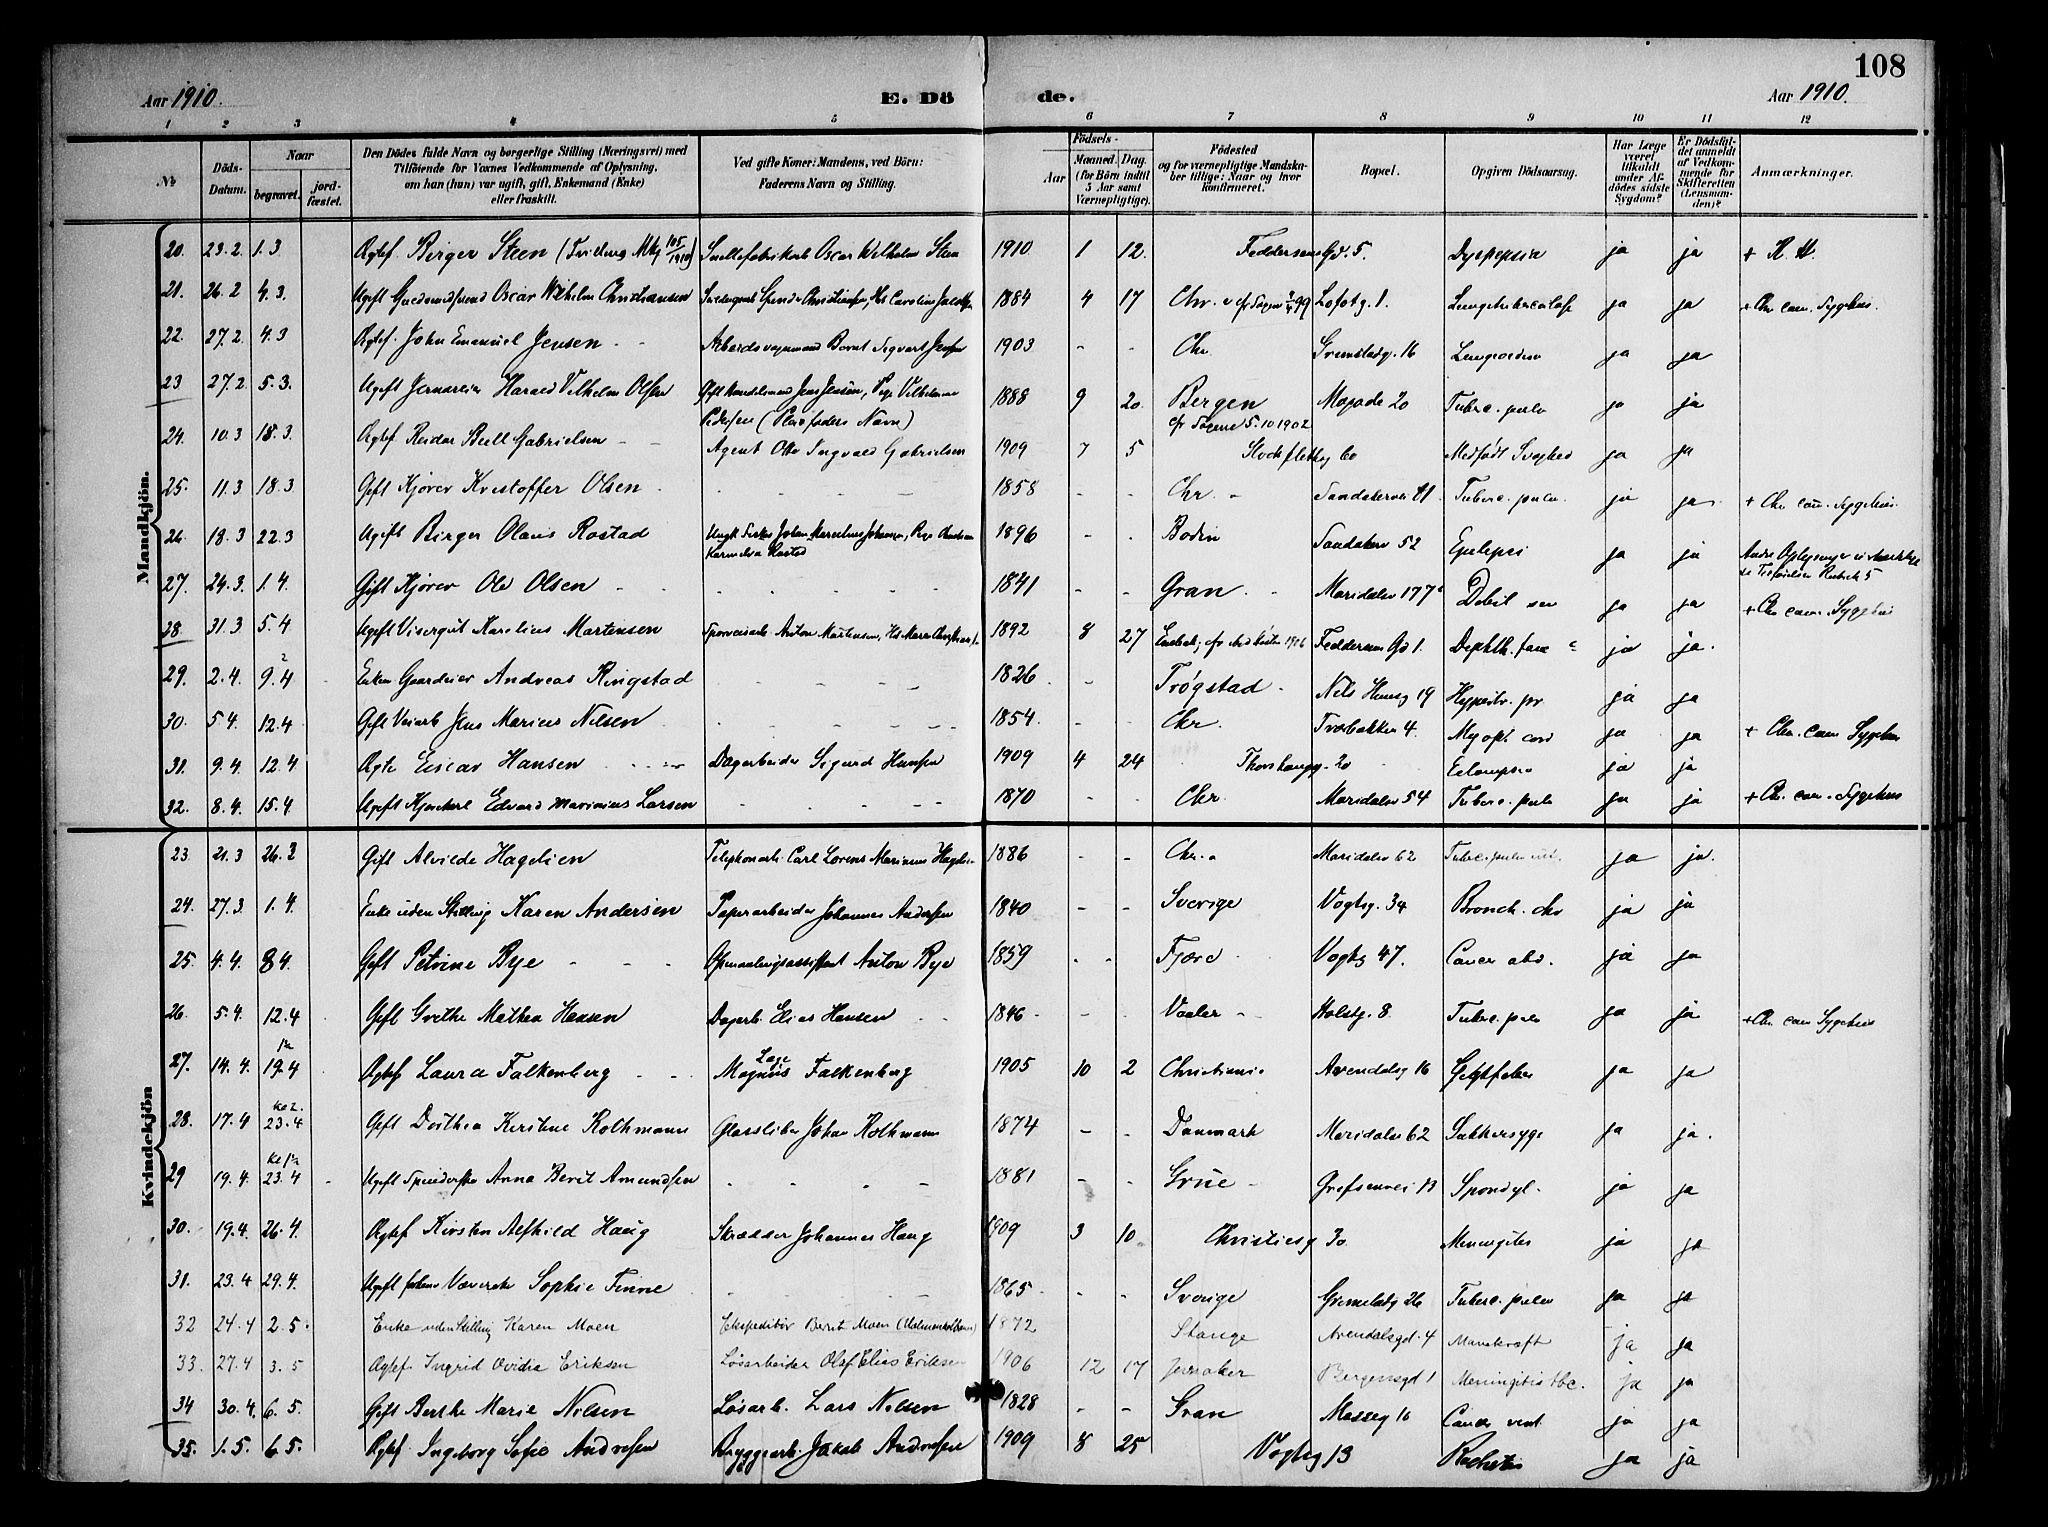 108
Aar 1910. E. Dö de. Aar 1910.
1 2 3 4 5 6 7 8 9 10 11 12
No Döds-Datum. Naar begravet. jordfæstet. Den Dödes fulde Navn og borgerlige Stilling (Næringsvei) med Tilföiende for Voxnes Vedkommende af Oplysning, om han (hun) var ugift, gift, Enkemand (Enke) eller fraskilt. Ved gifte Koner: Mandens, ved Börn: Faderens Navn og Stilling. Födsels- Aar Maaned. Dag. (for Börn indtil 5 Aar samt Værnepligtige). Födested og for værnepligtige Mandskaber tillige: Naar og hvor konfirmeret. Bopæl. Opgiven Dödsaarsag. Har Læge været tilkaldt under Afdödes sidste Sygdom? Er Dödsfaldet anmeldt af Vedkommende for Skifteretten (Lensmanden)? Anmærkninger.
Mandkjön.
20. 23.2. 1.3 Ægtef. Birger Steen Oscar Wilhelm Steen 1910 1 12. Feddersens Gd. 5. Dyspepsia ja ja
21. 26.2 4.3. Ugift Oscar Wilhelm Christiansen 1884 4 17 Chr. Lofotg. 1. Lungetuberculose ja ja + Chr. com. Sygehus.
22. 27.2. 4.3 Ægtef. John Emanuel Jensen - - Arbeidsvognmand Bernt Sigvart Jensen 1903 - - Chr. Grimstadg. 16 ja ja
23 27.2. 5.3. Ugift Harald Vilhelm Olsen 1888 9 20. Bergen 5.10.1902 20 Tuberc. pulm ja ja
Pedersen (Pleiefaders Navn)
24. 10.3 18.3. Ægtef. Reidar Bull Gabrielsen - - Agent Otto Ingvald Gabrielsen 1909 7 5 Stockflethsg 60 Medfödt Svaghed ja ja
25. 11.3 18.3 Gift Kjörer Kristoffer Olsen - - - - 1858 - - Chr. - Tuberc. pulm. ja ja + Chr. com. Sygehus.
26. 18.3 22.3 Ugift Birger Olaus Rostad 1896 - - Bodin 52 Epilepsi ja ja
27. 24.3. 1.4. Gift Kjörer Ole Olsen - - - - - - 1841 - - Gran - Maridalsv 177 Debil sen ja ja + Chr. com. Sygehus
28. 31.3 5.4 Ugift Visergut Karelius Martensen Sporveisarb. Anton Martensen, 1892 8 27 Feddersens Gd 1. ja ja.
29. 2.4. 9.4 Enkem Gaardeier Andreas Ringstad - - - - 1826 - - Trögstad - 19 ja ja
30. 5.4. 12.4 Gift Jens Marius Nilsen - - - - 1854 - - Chr. 4. ja ja + Chr. com Sygehus
31. 9.4. 12.4 Ægte Hansen - - - Dagarbeider Sigurd Hansen 1909 4 24 Thorshaugg. 20 Eclampsia ja ja
32. 8.4. 15.4 Ugift Edvard Marinius Larsen - - - - 1870 - - Chr. Maridalsv 54 Tuberc. pulm ja ja + Chr. com. Sygehus
Kvindekjön
23. 21.3 26.3 Gift Alvilde Hagelien Telephonarb. Carl Lorens Marinius 1886 - - Chr. Maridalsv 62 ja ja.
24. 27.3 1.4. Enke uden Stilling Karen Andersen Papirarbeider Johannes Andersen 1840 - - Sverige Vogtsg. 34 Bronch. chr ja ja
25. 4.4. 8.4. Gift Petrine Bye - - - Opmaalingsassistent Anton Bye 1859 - - Vogtsg 47. Cancer abd. ja ja
26. 5.4. 12.4 Gift Grethe Mathea Hansen Dagarb. Elias Hansen - - 1846 - - Vaaler - Holstg. 8. Tuberc. pulm ja ja + Chr. com Sygehus
27. 14.4. 19.4 Ægtef Laura Falkenberg - - Lage Magnus Falkenberg 1905 10 2 Christiania Arendalsg 16 ja ja
28. 17.4 23.4 Gift Dorthea Kirstine Rothmann Glassliber Johan Rothmann 1874 - - Danmark Maridalsv 62 Sukkersyge ja ja.
29 19.4. 23.4 Ugift Anna Berit Amundsen - - - - 1881 - - Grue - Grefsenvei 13 Spondyl. ja ja
30. 19.4. 26.4 Ægtef Kirsten Alfhild Haug Skrædder Johannes Haug 1909 3 10 Christiesg 30 Meningitis ja ja
31. 23.4 29.4. Ugift Sophie Finne - - - - 1865 - - Sverige Grimstadg 26 Tuberc. pulm ja ja
32 24.4 2.5. Enke uden Stilling Karen Moen Ekspeditör Bernt Moen 1872 Stange Arendalsgd. 4 ja ja
33. 27.4 3.5 Ægtef. Ingrid Ovidia Eriksen Lösarbeider Olaf Elias Eriksen 1906 12 17 Jevnaker Bergensgd 1 Meningitis tbc. ja ja
34 30.4. 6.5. Gift Berthe Marie Nilsen Lösarb. Lars Nilsen 1828 - - Gran 16 Cancer vent. ja ja
35. 1.5. 6.5. Ægtef. Ingeborg Sofie Andresen Bryggearb. Jakob Andresen 1909 8 25 Vogtsg 13 ja ja